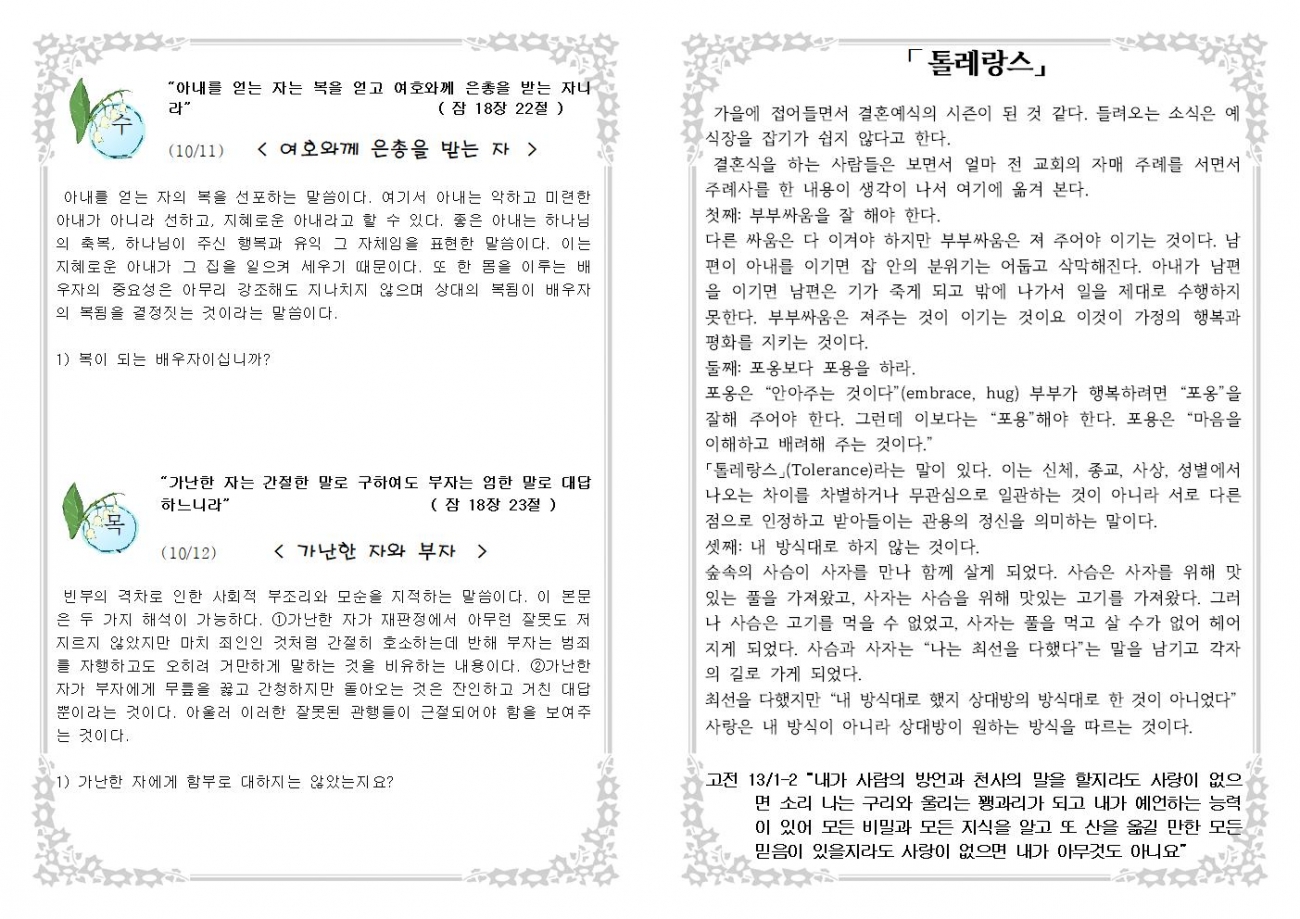 수
“아내를 얻는 자는 복을 얻고 여호와께 은총을 받는 자니
라” ( 잠 18장 22절 )
(10/11) < 여호와께 은총을 받는 자 >
아내를 얻는 자의 복을 선포하는 말씀이다. 여기서 아내는 악하고 미련한
아내가 아니라 선하고, 지혜로운 아내라고 할 수 있다. 좋은 아내는 하나님
의 축복, 하나님이 주신 행복과 유익 그 자체임을 표현한 말씀이다. 이는
지혜로운 아내가 그 집을 일으켜 세우기 때문이다. 또 한 몸을 이루는 배
우자의 중요성은 아무리 강조해도 지나치지 않으며 상대의 복됨이 배우자
의 복됨을 결정짓는 것이라는 말씀이다.
1) 복이 되는 배우자이십니까?
목
“가난한 자는 간절한 말로 구하여도 부자는 엄한 말로 대답
하느니라” ( 잠 18장 23절 )
(10/12) < 가난한 자와 부자 >
빈부의 격차로 인한 사회적 부조리와 모순을 지적하는 말씀이다. 이 본문
은 두 가지 해석이 가능하다. ①가난한 자가 재판정에서 아무런 잘못도 저
지르지 않았지만 마치 죄인인 것처럼 간절히 호소하는데 반해 부자는 범죄
를 자행하고도 오히려 거만하게 말하는 것을 비유하는 내용이다. ②가난한
자가 부자에게 무릎을 꿇고 간청하지만 돌아오는 것은 잔인하고 거친 대답
뿐이라는 것이다. 아울러 이러한 잘못된 관행들이 근절되어야 함을 보여주
는 것이다.
1) 가난한 자에게 함부로 대하지는 않았는지요?
「톨레랑스」
가을에 접어들면서 결혼예식의 시즌이 된 것 같다. 들려오는 소식은 예
식장을 잡기가 쉽지 않다고 한다.
결혼식을 하는 사람들은 보면서 얼마 전 교회의 자매 주례를 서면서
주례사를 한 내용이 생각이 나서 여기에 옮겨 본다.
첫째: 부부싸움을 잘 해야 한다.
다른 싸움은 다 이겨야 하지만 부부싸움은 져 주어야 이기는 것이다. 남
편이 아내를 이기면 잡 안의 분위기는 어둡고 삭막해진다. 아내가 남편
을 이기면 남편은 기가 죽게 되고 밖에 나가서 일을 제대로 수행하지
못한다. 부부싸움은 져주는 것이 이기는 것이요 이것이 가정의 행복과
평화를 지키는 것이다.
둘째: 포옹보다 포용을 하라.
포옹은 “안아주는 것이다”(embrace, hug) 부부가 행복하려면 “포옹”을
잘해 주어야 한다. 그런데 이보다는 “포용”해야 한다. 포용은 “마음을
이해하고 배려해 주는 것이다.”
「톨레랑스」(Tolerance)라는 말이 있다. 이는 신체, 종교, 사상, 성별에서
나오는 차이를 차별하거나 무관심으로 일관하는 것이 아니라 서로 다른
점으로 인정하고 받아들이는 관용의 정신을 의미하는 말이다.
셋째: 내 방식대로 하지 않는 것이다.
숲속의 사슴이 사자를 만나 함께 살게 되었다. 사슴은 사자를 위해 맛
있는 풀을 가져왔고, 사자는 사슴을 위해 맛있는 고기를 가져왔다. 그러
나 사슴은 고기를 먹을 수 없었고, 사자는 풀을 먹고 살 수가 없어 헤어
지게 되었다. 사슴과 사자는 “나는 최선을 다했다”는 말을 남기고 각자
의 길로 가게 되었다.
최선을 다했지만 “내 방식대로 했지 상대방의 방식대로 한 것이 아니었다”
사랑은 내 방식이 아니라 상대방이 원하는 방식을 따르는 것이다.
고전 13/1-2 “내가 사람의 방언과 천사의 말을 할지라도 사랑이 없으
면 소리 나는 구리와 울리는 꽹과리가 되고 내가 예언하는 능력
이 있어 모든 비밀과 모든 지식을 알고 또 산을 옮길 만한 모든
믿음이 있을지라도 사랑이 없으면 내가 아무것도 아니요”